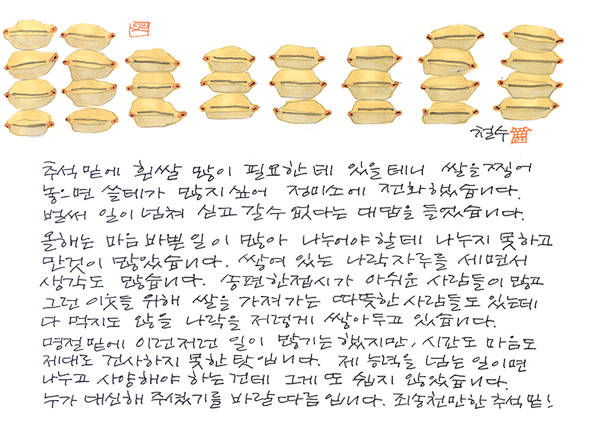 철수
추석 밑에 흰쌀 많이 필요한 데 있을테니 쌀을 찧어
놓으면 쓸데가 많지 싶어 정미소에 전화했습니다.
벌써 일이 넘쳐 싣고 갈수 없다는 대답을 들었습니다.
올해는 마음 바쁜 일이 많아 나누어야 할텐데 나누지 못하고
만것이 많았습니다. 쌓여 있는 나락자루를 세면서
생각도 많습니다. 송편 한접시가 아쉬운 사람들이 많고
그런 이웃들 위해 쌀을 가져가는 따뜻한 사람들도 있는데
다 먹지도 않을 나락을 저렇게 쌓아두고 있습니다.
명절 밑에 이런저런 일이 많기는 했지만, 시간도 마음도
제대로 건사하지 못한 탓입니다. 제 능력을 넘는 일이면
나누고 사양해야 하는건데 그게 또 쉽지 않았습니다.
누가 대신해 주셨기를 바랄 따름입니다. 죄송천만한 추석 밑!